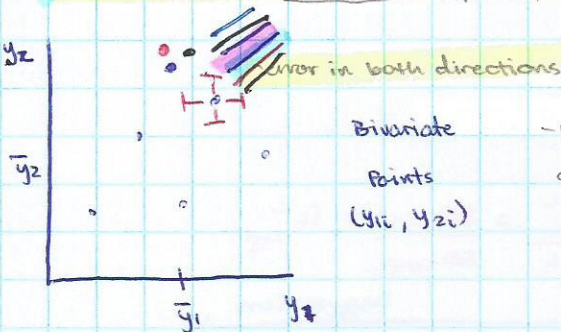 y₂
error in both directions
Bivariate
ȳ₂
Points
(y₁ᵢ, y₂ᵢ)
ȳ₁